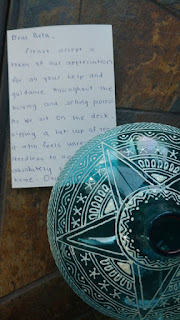 Dear Bela,
Please accept a
token of our appreciation
for all your help and
guidance throughout the
buying and selling process
As we sit on the deck
sipping a hot cup of tea
it
feels
absolutely
home.